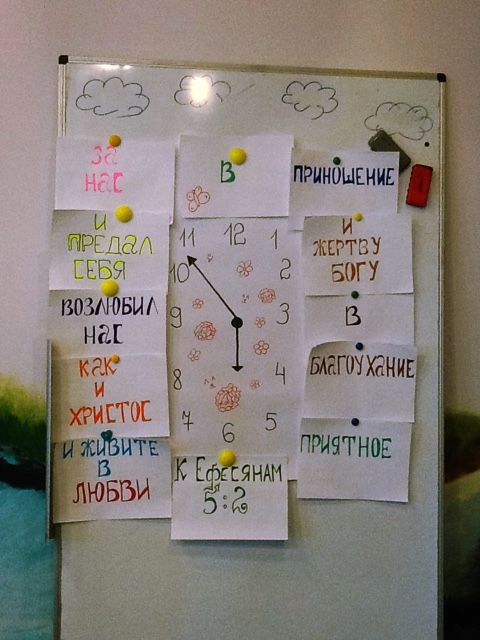 И ЖИВИТЕ
В
ЛЮБВИ
КАК
И
ХРИСТОС
ВОЗЛЮБИЛ
НАС
И
ПРЕДАЛ
СЕБЯ
ЗА
НАС
В
ПРИНОШЕНИЕ
И
ЖЕРТВУ
БОГУ
В
БЛАГОУХАНИЕ
ПРИЯТНОЕ
К ЕФЕСЯНАМ
5:2
12
11 1
10 2
9 3
8 4
7 5
6